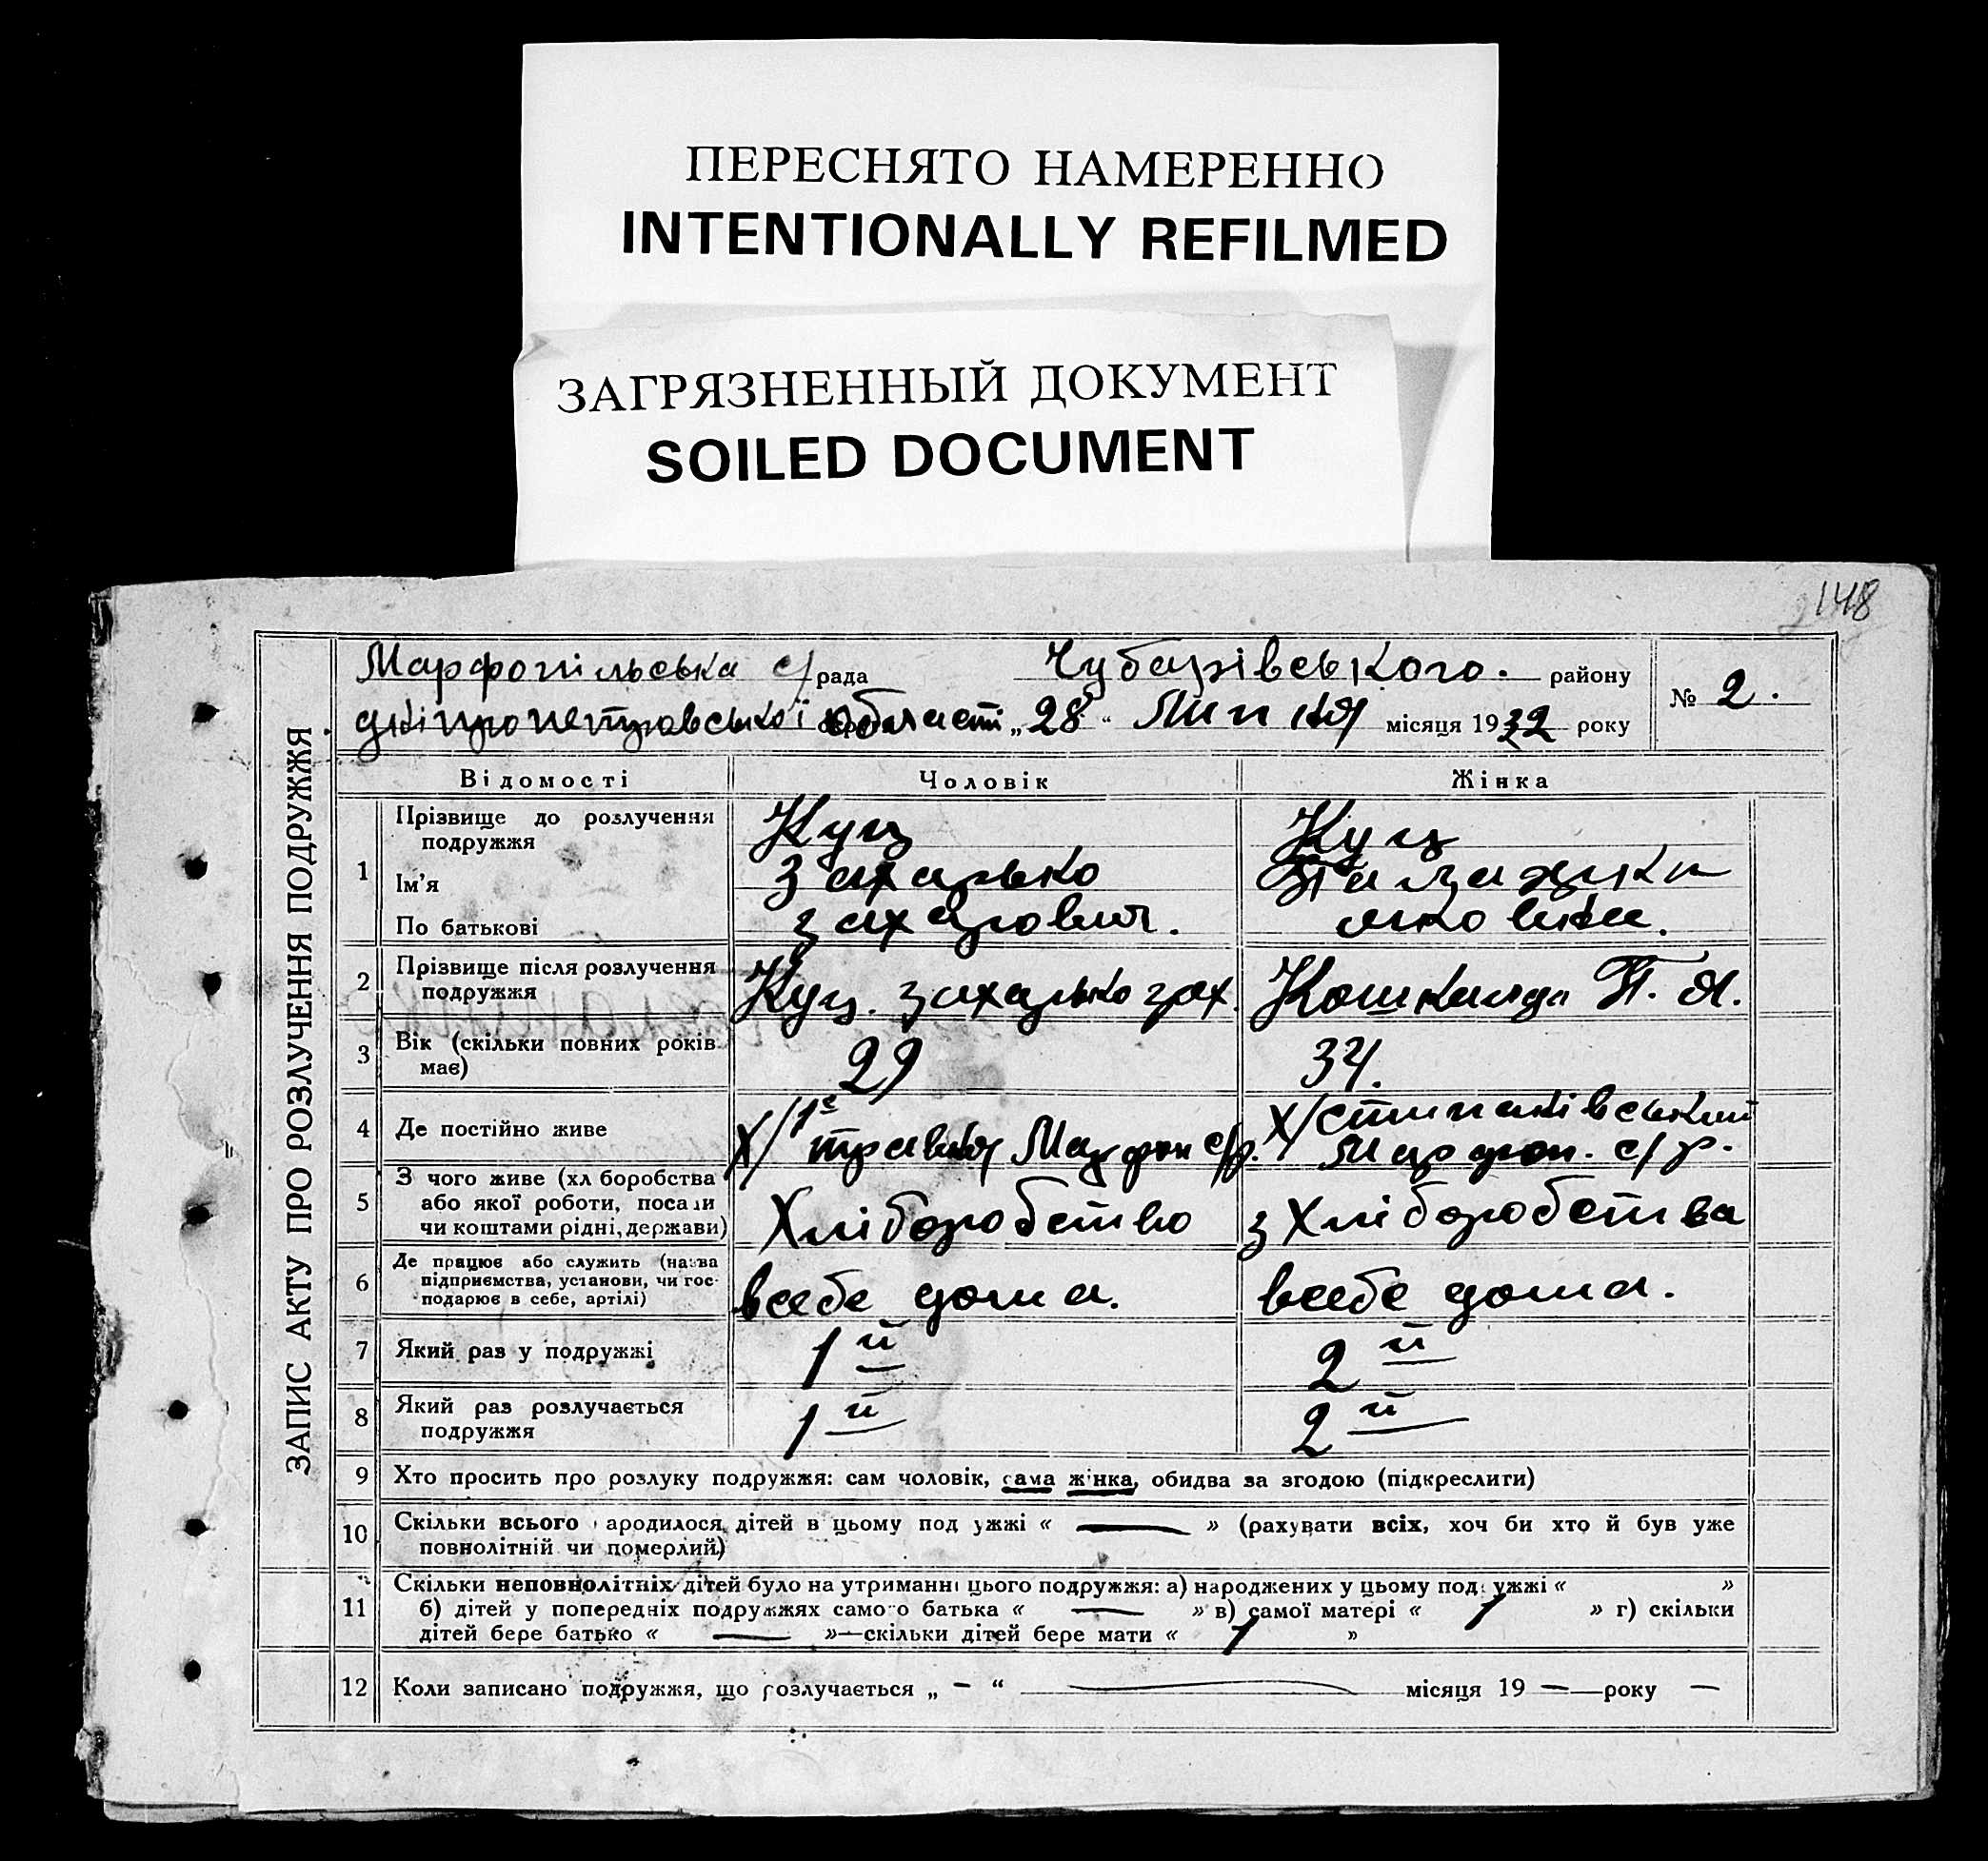 ПЕРЕСНЯТО НАМЕРЕННО
INTENTIONALLY REFILMED
ЗАГРЯЗНЕННЫЙ ДОКУМЕНТ
SOILED DOCUMENT
148
ЗАПИС АКТУ ПРО РОЗЛУЧЕННЯ ПОДРУЖЖЯ
Марфопільська с/рада Чубарівського. району
№ 2.
Дніпропетровської області „28“ Липня місяця 1932 року
Відомості Чоловік Жінка
1 Прізвище до розлучення подружжя Куц Куц
Ім’я Захарько
По батькові Захарович.
2 Прізвище після розлучення подружжя Куц. Захарько Зах. П. Я.
3 Вік (скільки повних років має) 29 34.
4 Де постійно живе х/1е травня Марфоп с/р. х/ Марфоп. с/р.
5 З чого живе (хл боробства або якої роботи, посади чи коштами рідні, держави) Хліборобство з Хліборобства
6 Де працює або служить (назва підприємства, установи, чи господарює в себе, артілі) всебе дома. всебе дома.
7 Який раз у подружжі 1й 2й
8 Який раз розлучається подружжя 1й 2й
9 Хто просить про розлуку подружжя: сам чоловік, сама жінка, обидва за згодою (підкреслити)
10 Скільки всього ародилося дітей в цьому под ужжі « — » (рахувати всіх, хоч би хто й був уже
повнолітній чи померлий)
11 Скільки неповнолітніх дітей було на утриманні цього подружжя: а) народжених у цьому под ужжі « »
б) дітей у попередніх подружжях самого батька « — » в) самої матері « 1 » г) скільки
дітей бере батько « — »—скільки дітей бере мати « 1 »
12 Коли записано подружжя, що розлучається „ — “ — місяця 19 — року —